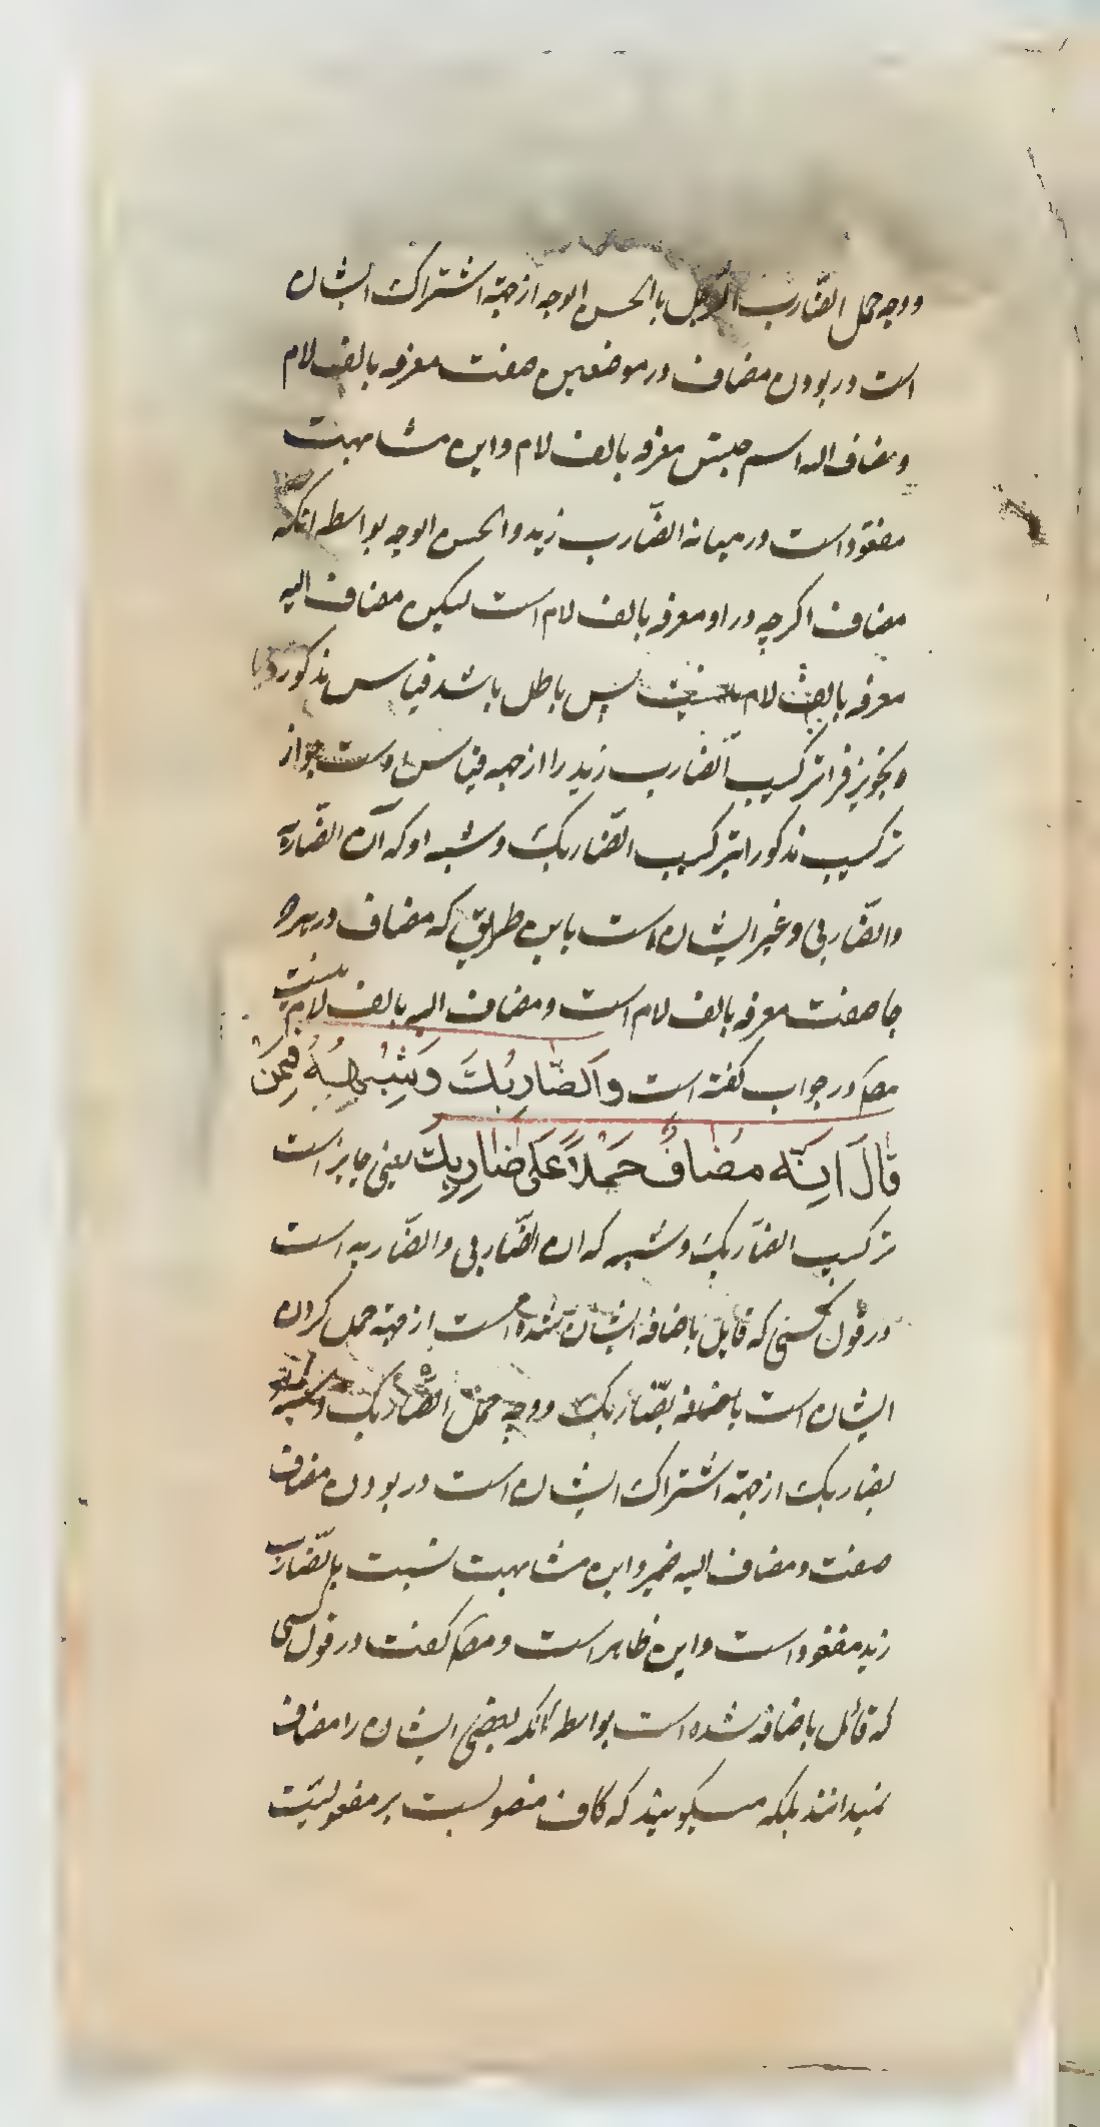 و وجه حمل الضّارب الرّجل با الحسن الوجه از جهة اشتراک ایشان
است در بودن مضاف در موضعین صفت معرفه بالف لام
و مضاف الیه اسم جنس معرفه بالف لام و این مشابهت
مفقود است در میانه الضّارب زید و الحسن الوجه بواسطه انکه
مضاف اکرچه در او معرفه بالف لام است لیکن مضاف الیه
معرفه بالف لام نیست پس باطل باشد قیاس مذکور
و تجویز فرا ترکیب الضّارب زید را از جهه قیاس جواز
ترکیب مذکور بترکیب الضّاربکَ و شبه او که آن الضّاربه
و الضّاربی و غیر ایشان است باین طریق که مضاف در هر دو
جا صفت معرفه بالف لام است و مضاف الیه بالف لام نیست
مصـ در جواب کفته است وَالضّارِبُكَ وَشِبْهُهُ فِیمَنْ
قَالَ اِنَّه مُضافٌ حَمْلاً عَلیٰ ضارِبِكَ یعنی جایز است
ترکیب الضّاربکَ و شبه که ان الضّاربی و الضّاربه است
در قول کسی که قایل باضافه ایشان شده است از جهة حمل کردن
ایشان است باضافه بضّاربک و وجه حمل الضّاربک و شبه
بضاربک از جهة اشتراک ایشان است در بودن مضاف
صفت و مضاف الیه ضمیر و این مشابهت نسبت بالضّارب
زید مفقود است و این ظاهر است و مصـ کفت در قول کسی
که قائل باضافه شده است بواسطه آنکه بعضی ایشان را مضاف
نمیدانند بلکه میکویند که کاف منصوبست بر مفعولیّت